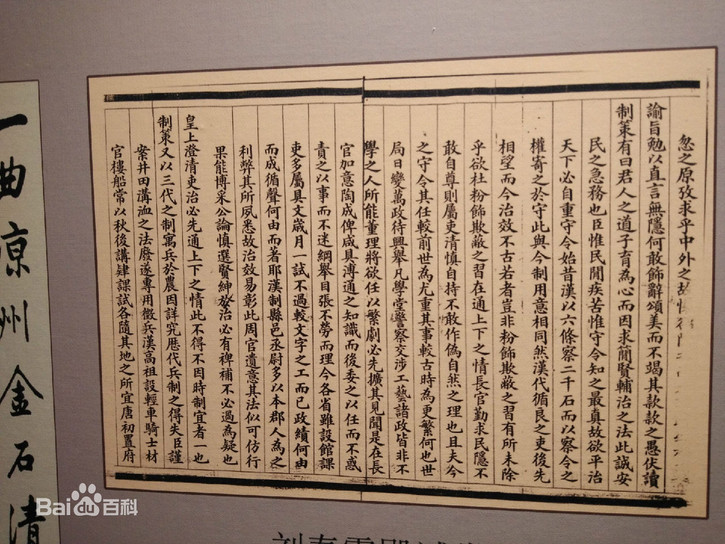 忽之原攷求乎中外之故
諭旨勉以直言無隱何敢飾辭頌美而不竭其款款之愚伏讀
制策有曰君人之道子育為心而因求聞賢輔治之法此誠安
民之急務也臣惟民間疾苦惟守令知之最真故欲平治
天下必自重守令始昔漢以六條察二千石而以察令之
權寄之於守此與今制用意相同然漢代循良之吏後先
相望而今治效不古若者豈非粉飾欺蔽之習有所未除
乎欲杜粉飾欺蔽之習在通上下之情長官勤求民隱不
敢自尊則屬吏清慎自持不敢作偽自然之理也且夫今
之守令其任較前世為尤重其事較古時為更繁何也世
局日變萬政待興舉凡學堂警察交涉工藝諸政皆非不
學之人所能董理將欲任以繁劇必先擴其見聞是在長
官加意陶成俾咸具溥通之知識而後委之以任而不惑
責之以事而不迷綱舉目張不勞而理今各省雖設館課
吏多屬具文歲月一試不過較文字之工而已政績何由
而成循聲何由而著耶漢制縣邑丞尉多以本郡人為之
利弊其所夙悉故治效易彰此周官遺意其法似可仿行
果能博采公論慎選賢紳於治必有裨補不必過為疑也
皇上澄清吏治必先通上下之情此不得不因時制宜者一也
制策又以三代之制寓兵於農因詳究歷代兵制之得失臣謹
案井田溝洫之法廢遂專用徵兵漢高祖設輕車騎士材
官樓船常以秋後講肄課試各隨其地之所宜唐初置府
一曲涼州金石清
Bai百科
劉春霖殿試